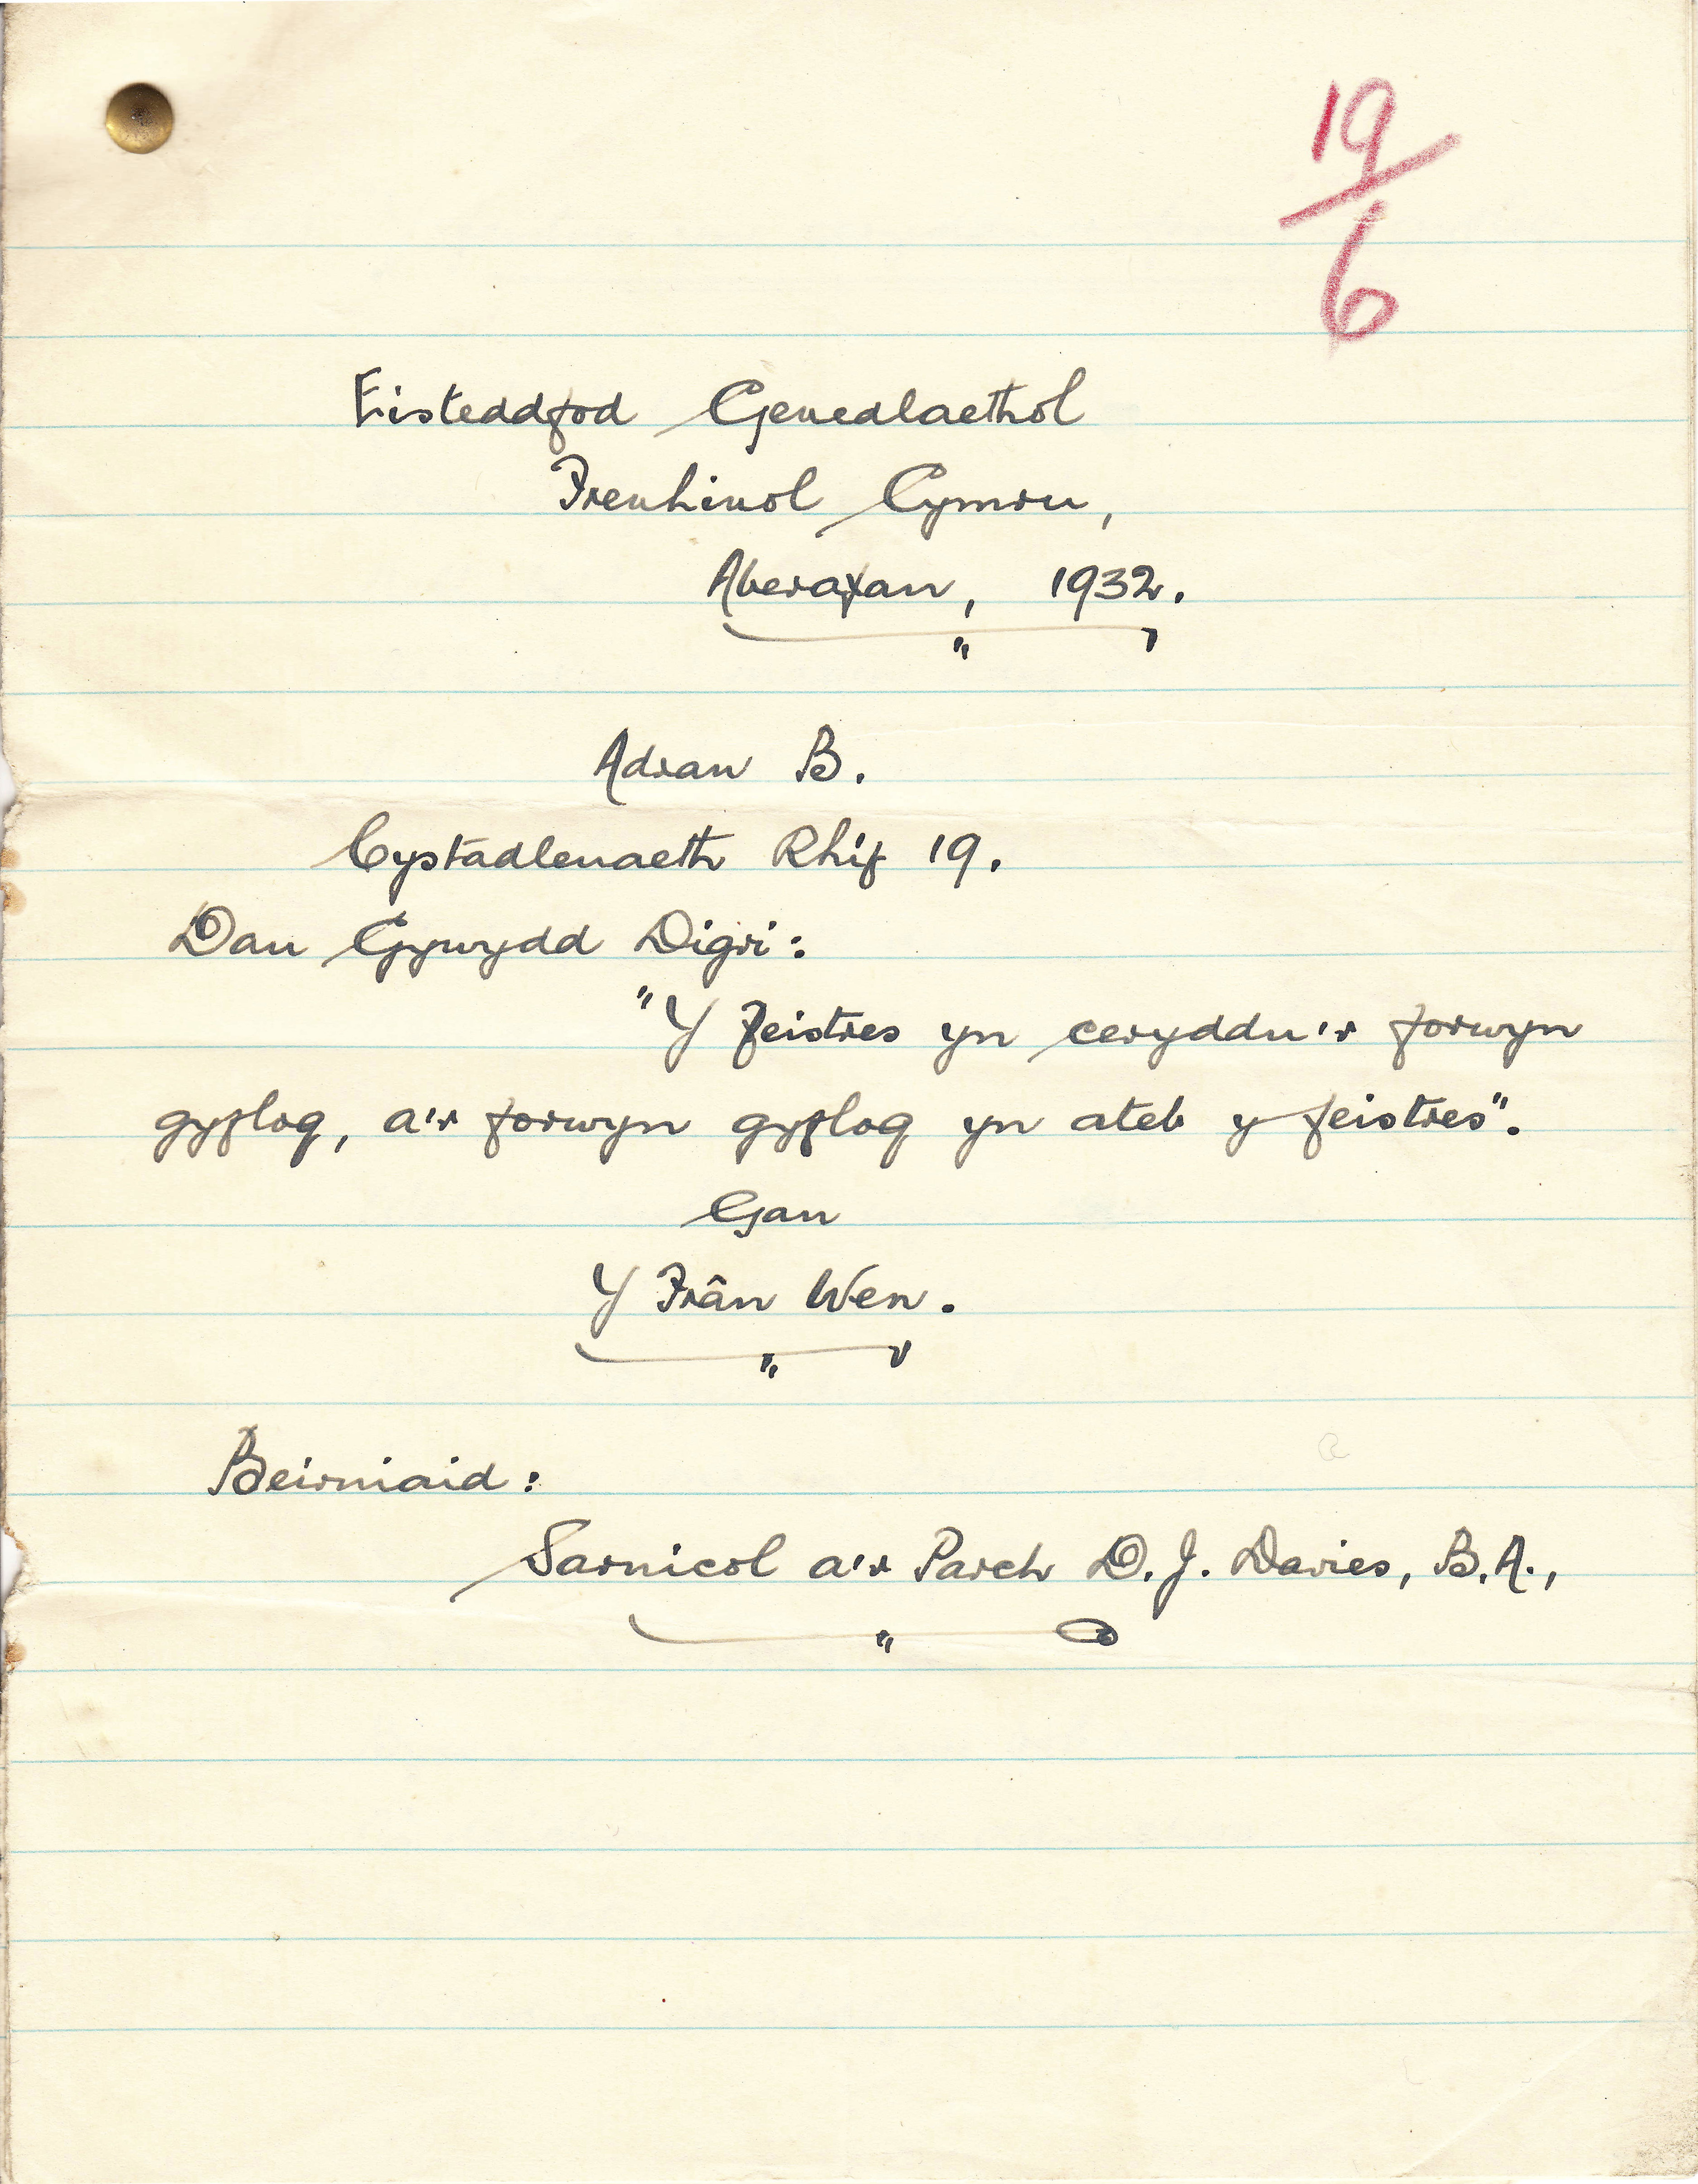 19/6
Eisteddfod Genedlaethol
Frenhinol Cymru,
Aberafan, 1932.
Adran B.
Cystadleuaeth Rhif 19.
Dau Gywydd Digri:
"Y feistres yn ceryddu'r forwyn
gyflog, a'r forwyn gyflog yn ateb y feistres".
Gan
Y Frân Wen.
Beirniaid:
Sarnicol a'r Parch D. J. Davies, B.A.,